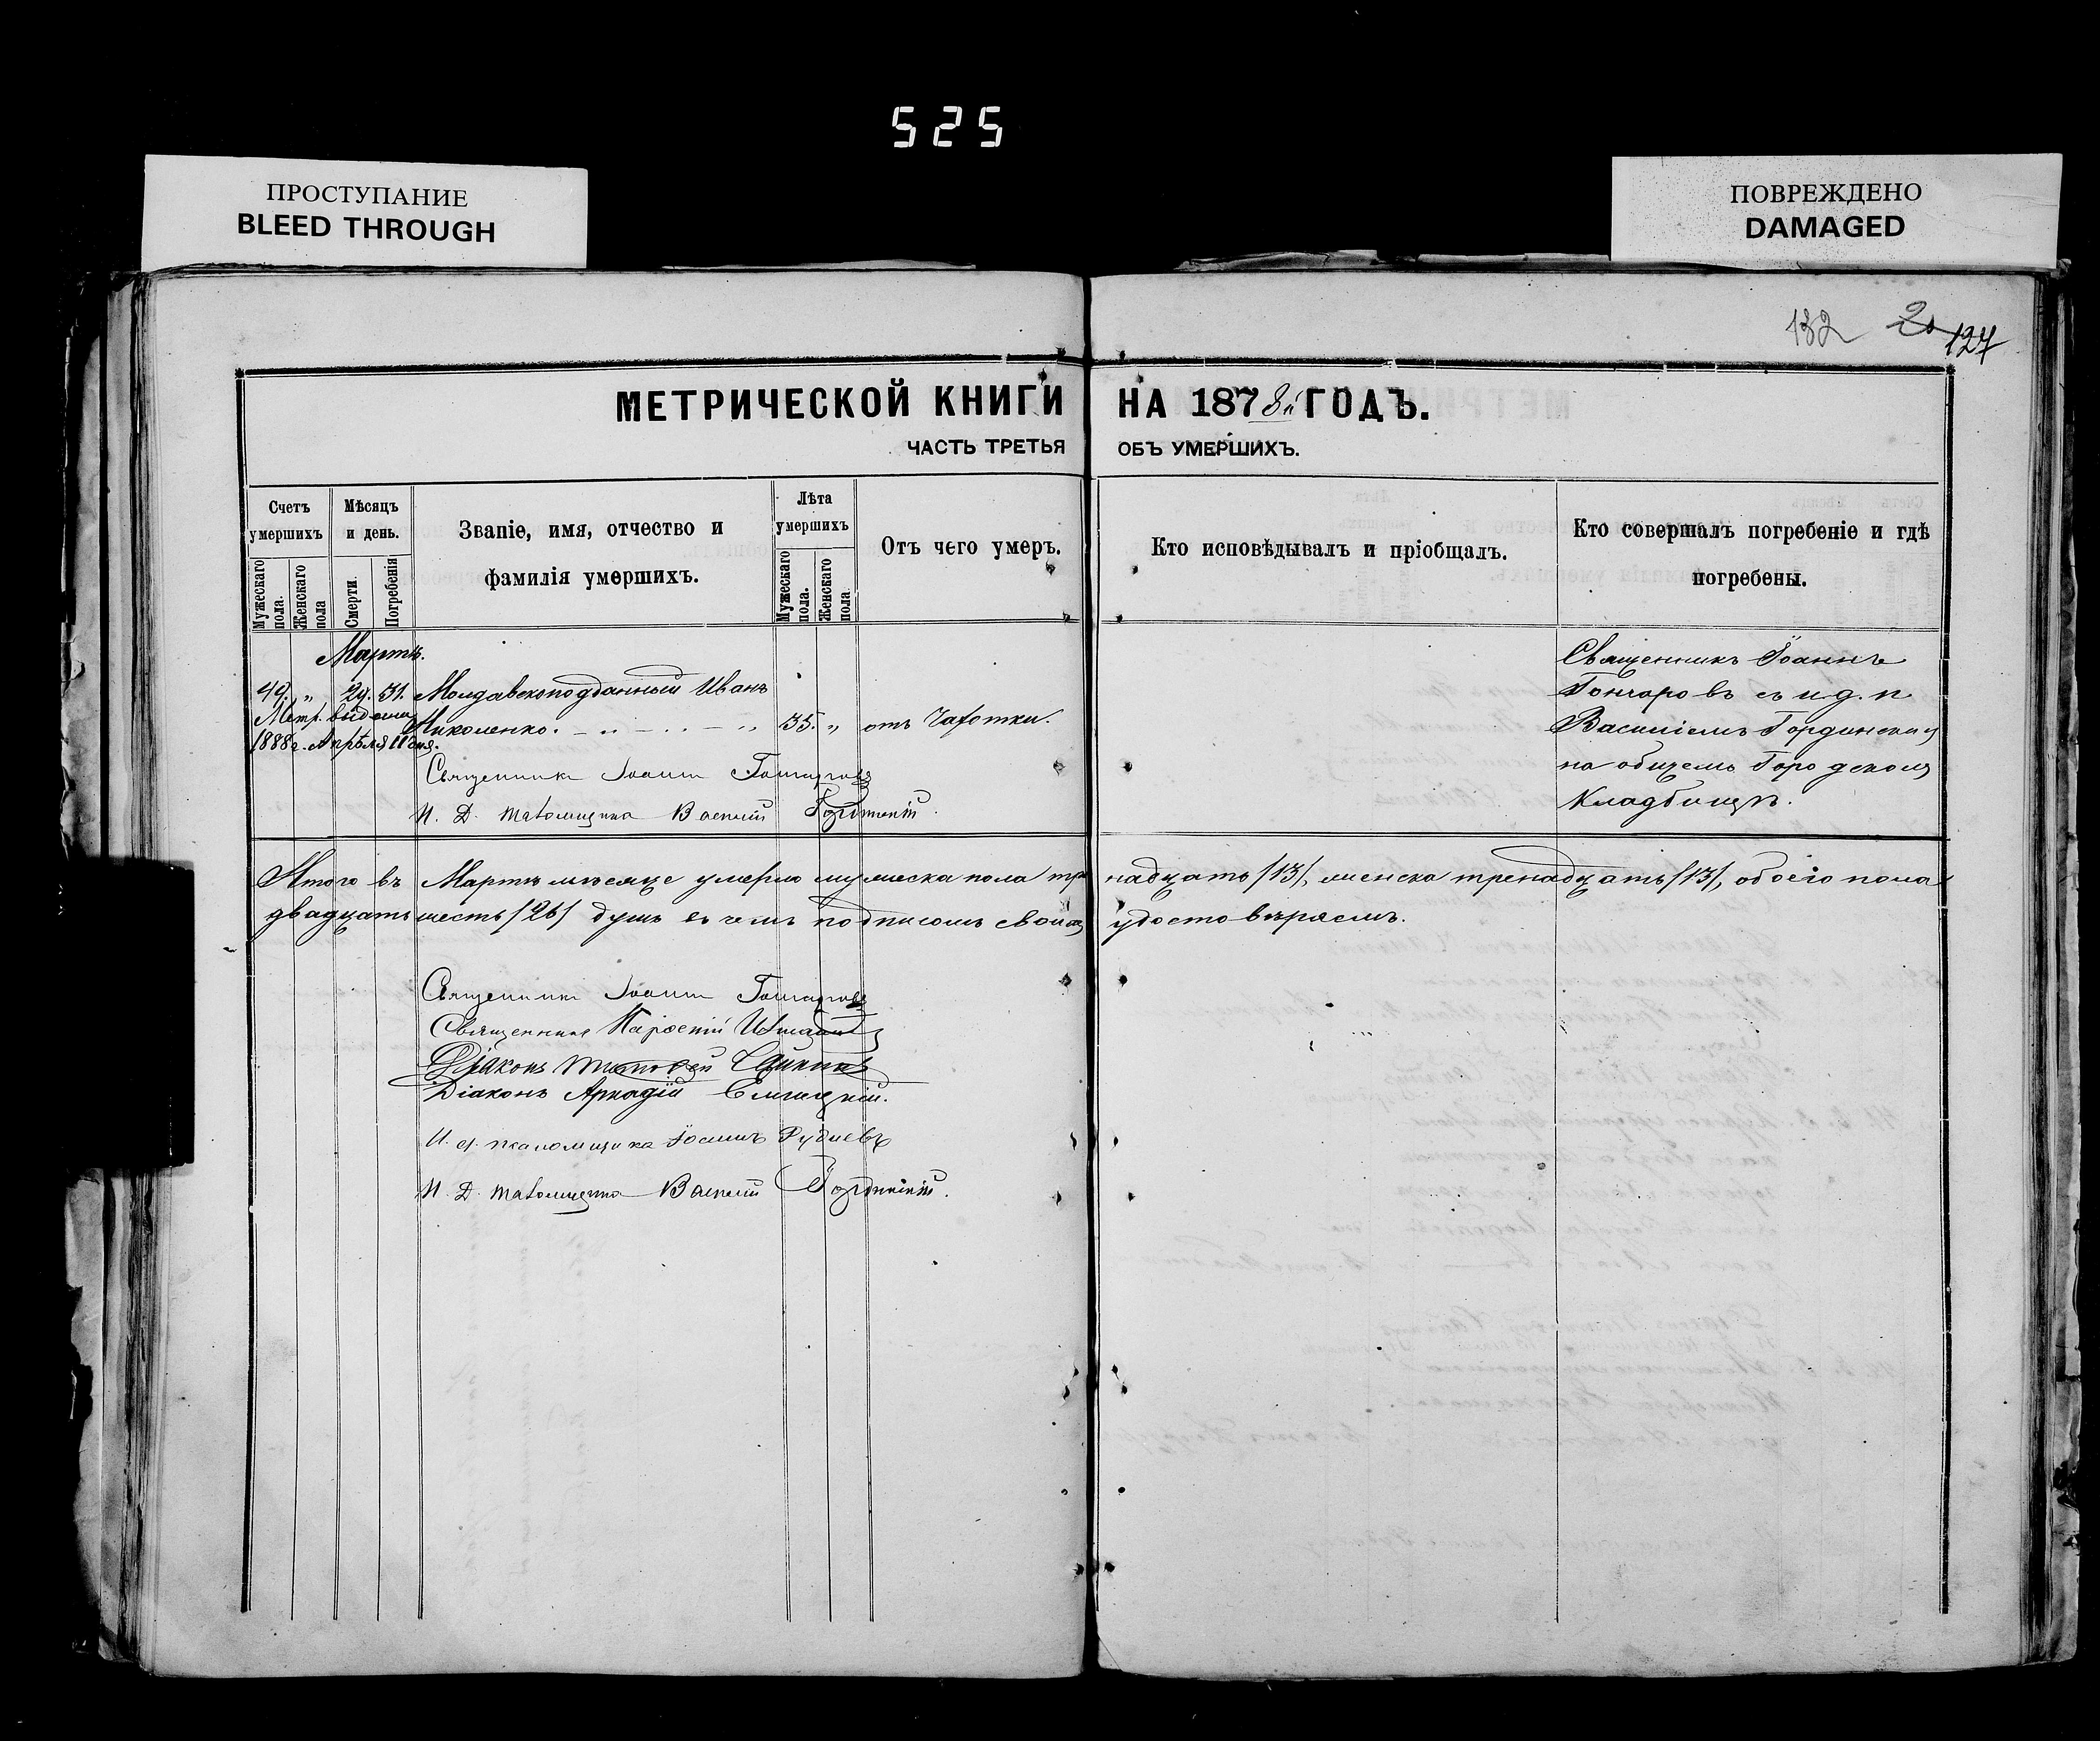 525
ПРОСТУПАНИЕ
BLEED THROUGH
ПОВРЕЖДЕНО
DAMAGED
132 20 127
МЕТРИЧЕСКОЙ КНИГИ НА 1878й ГОДЪ.
ЧАСТЬ ТРЕТЬЯ ОБЪ УМЕРШИХЪ.
Счетъ умершихъ
Мужескаго пола.
Женскаго пола
Мѣсяцъ и день.
Смерти.
Погребенія
Званіе, имя, отчество и
фамилія умершихъ.
Лѣта умершихъ
Мужескаго пола.
Женскаго пола
Отъ чего умеръ.
Кто исповѣдывалъ и пріобщалъ.
Кто совершалъ погребеніе и гдѣ
погребены.
Мартъ.
49. „ 29. 31. Молдавскоподданный Иванъ
Метр. выдана
Николенко. 35. „ отъ Чахотки.
1888 г. Апрѣля 11 дня.
Священникъ Іоаннъ Гончаровъ
И. Д. псаломщика Василій Гординскій.
Священникъ Іоаннъ
Гончаровъ съ и. д. п.
Василіемъ Гординскимъ
на общемъ Городскомъ
Кладбищѣ.
Итого въ Мартѣ мѣсяце умерло мужеска пола тринадцать /13/, женска тренадцать /13/, обоего пола
двадцать шесть /26/ душъ въ чемъ подписомъ своимъ удостовѣряемъ.
Священникъ Іоаннъ Гончаровъ
Священникъ
Діаконъ
Діаконъ Аркадій
И. д. псаломщика Іоаннъ Рудневъ
И. Д. псаломщика Василій Гординскій.